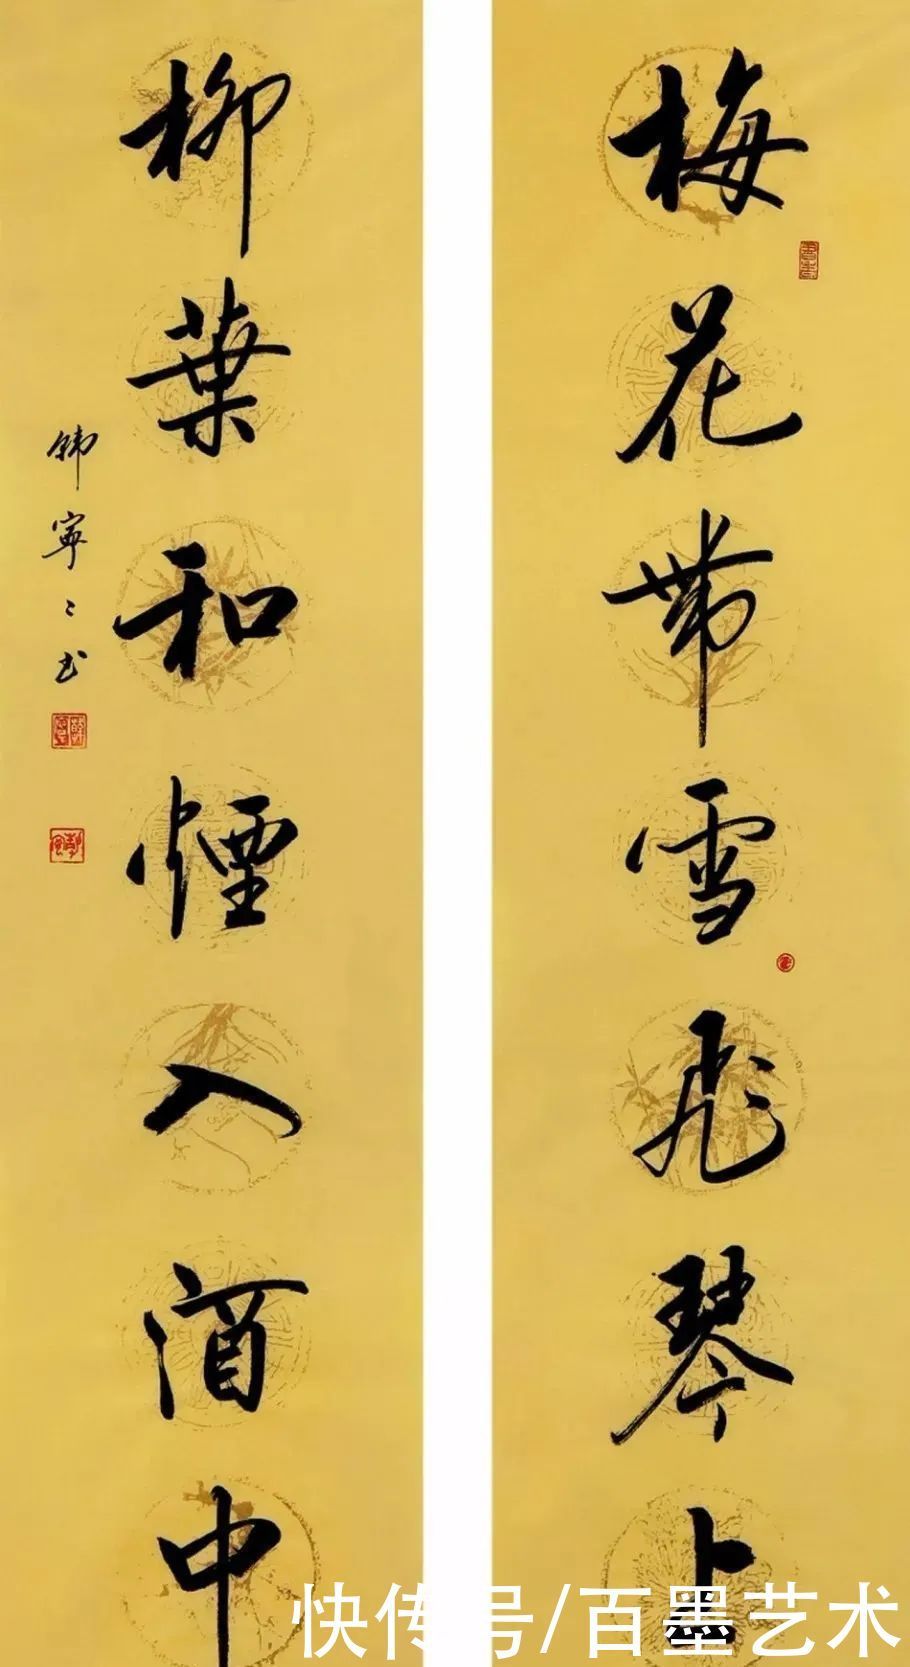 梅花带雪飛琴上
柳葉和煙入酒中
韩寧〻书
快传号/百墨艺术